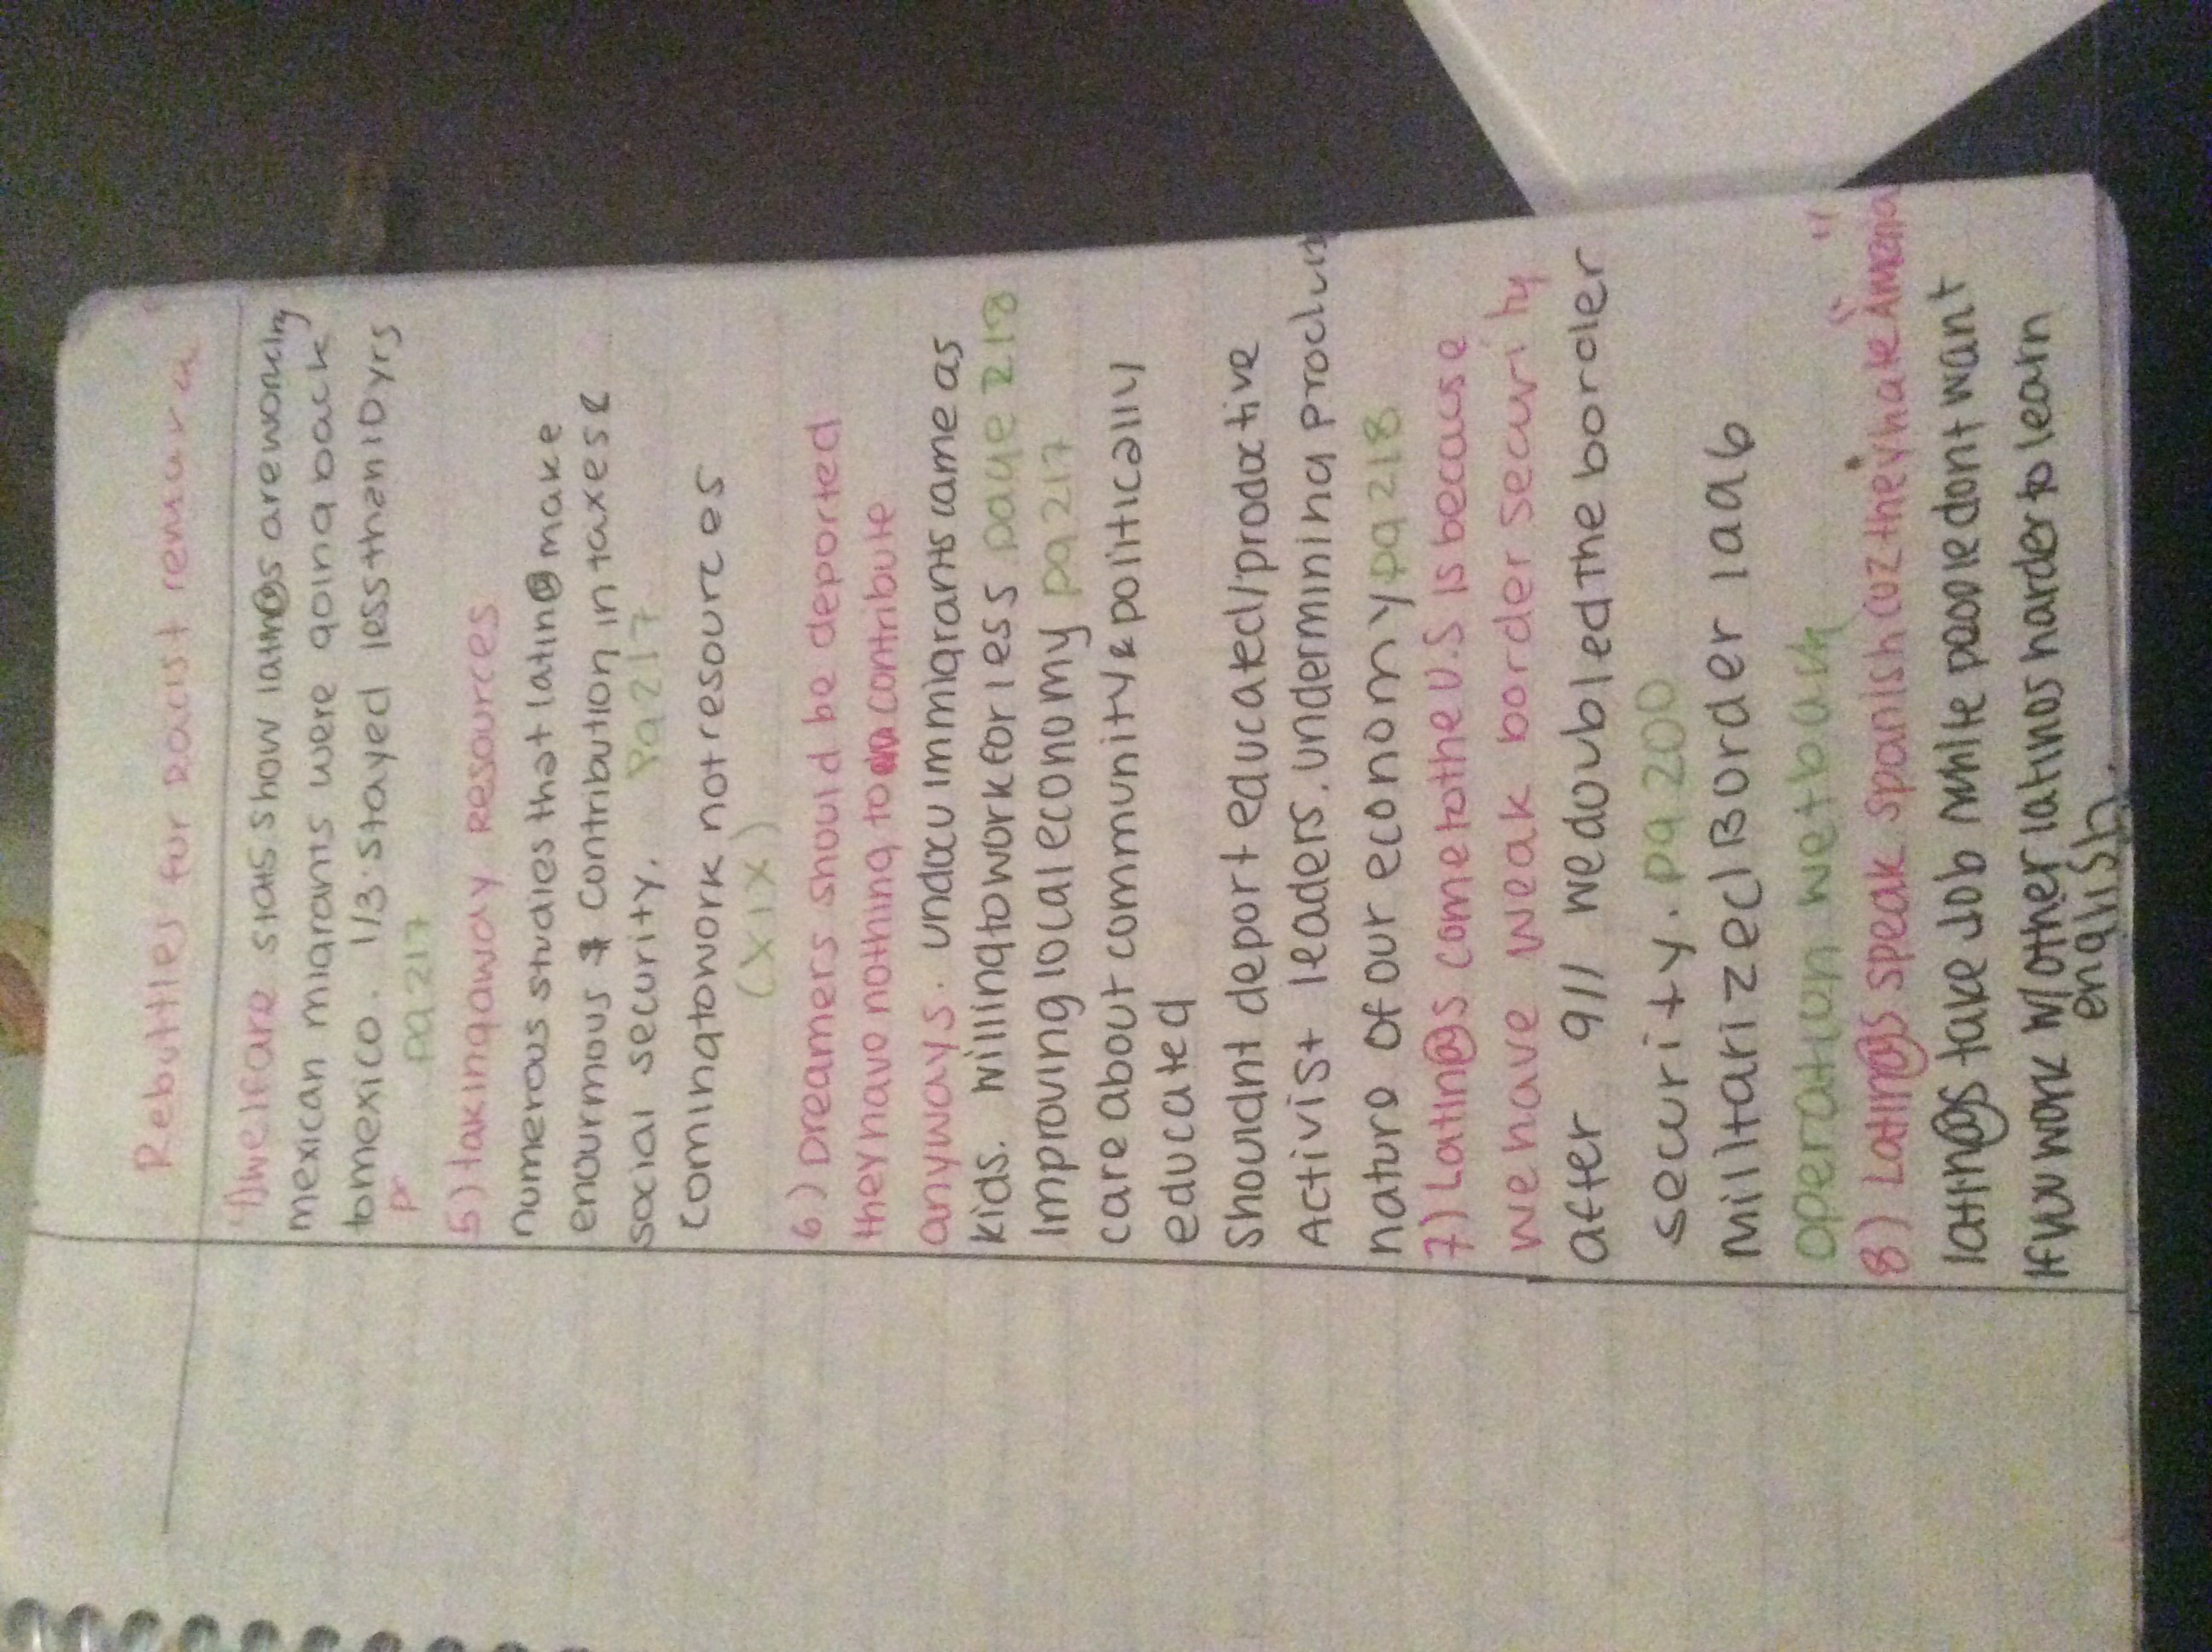 Rebuttles for racist remarks
welfare stats show latin@s are working
mexican migrants were going back
to mexico. 1/3 stayed less than 10 yrs
pg 217
5) taking away resources
numerous studies that latin@ make
enourmous $ contribution in taxes &
social security. Pg 217
coming to work not resources
(XIX)
6) Dreamers should be deported
they have nothing to contribute
anyways. undocu immigrants came as
kids. willing to work for less page 218
Improving local economy pg 217
care about community & politically
educated
Shouldnt deport educated/productive
Activist leaders. undermining
nature of our economy pg 218
7) Latin@s come to the U.S is because
we have weak border security
after 911 we doubled the border
security. pg 200
Militarized Border 1996
operation wetback
8) Latin@s speak spanish cuz they hate "America"
latin@s take job white people dont want
If you work w/ other latinos harder to learn
english.